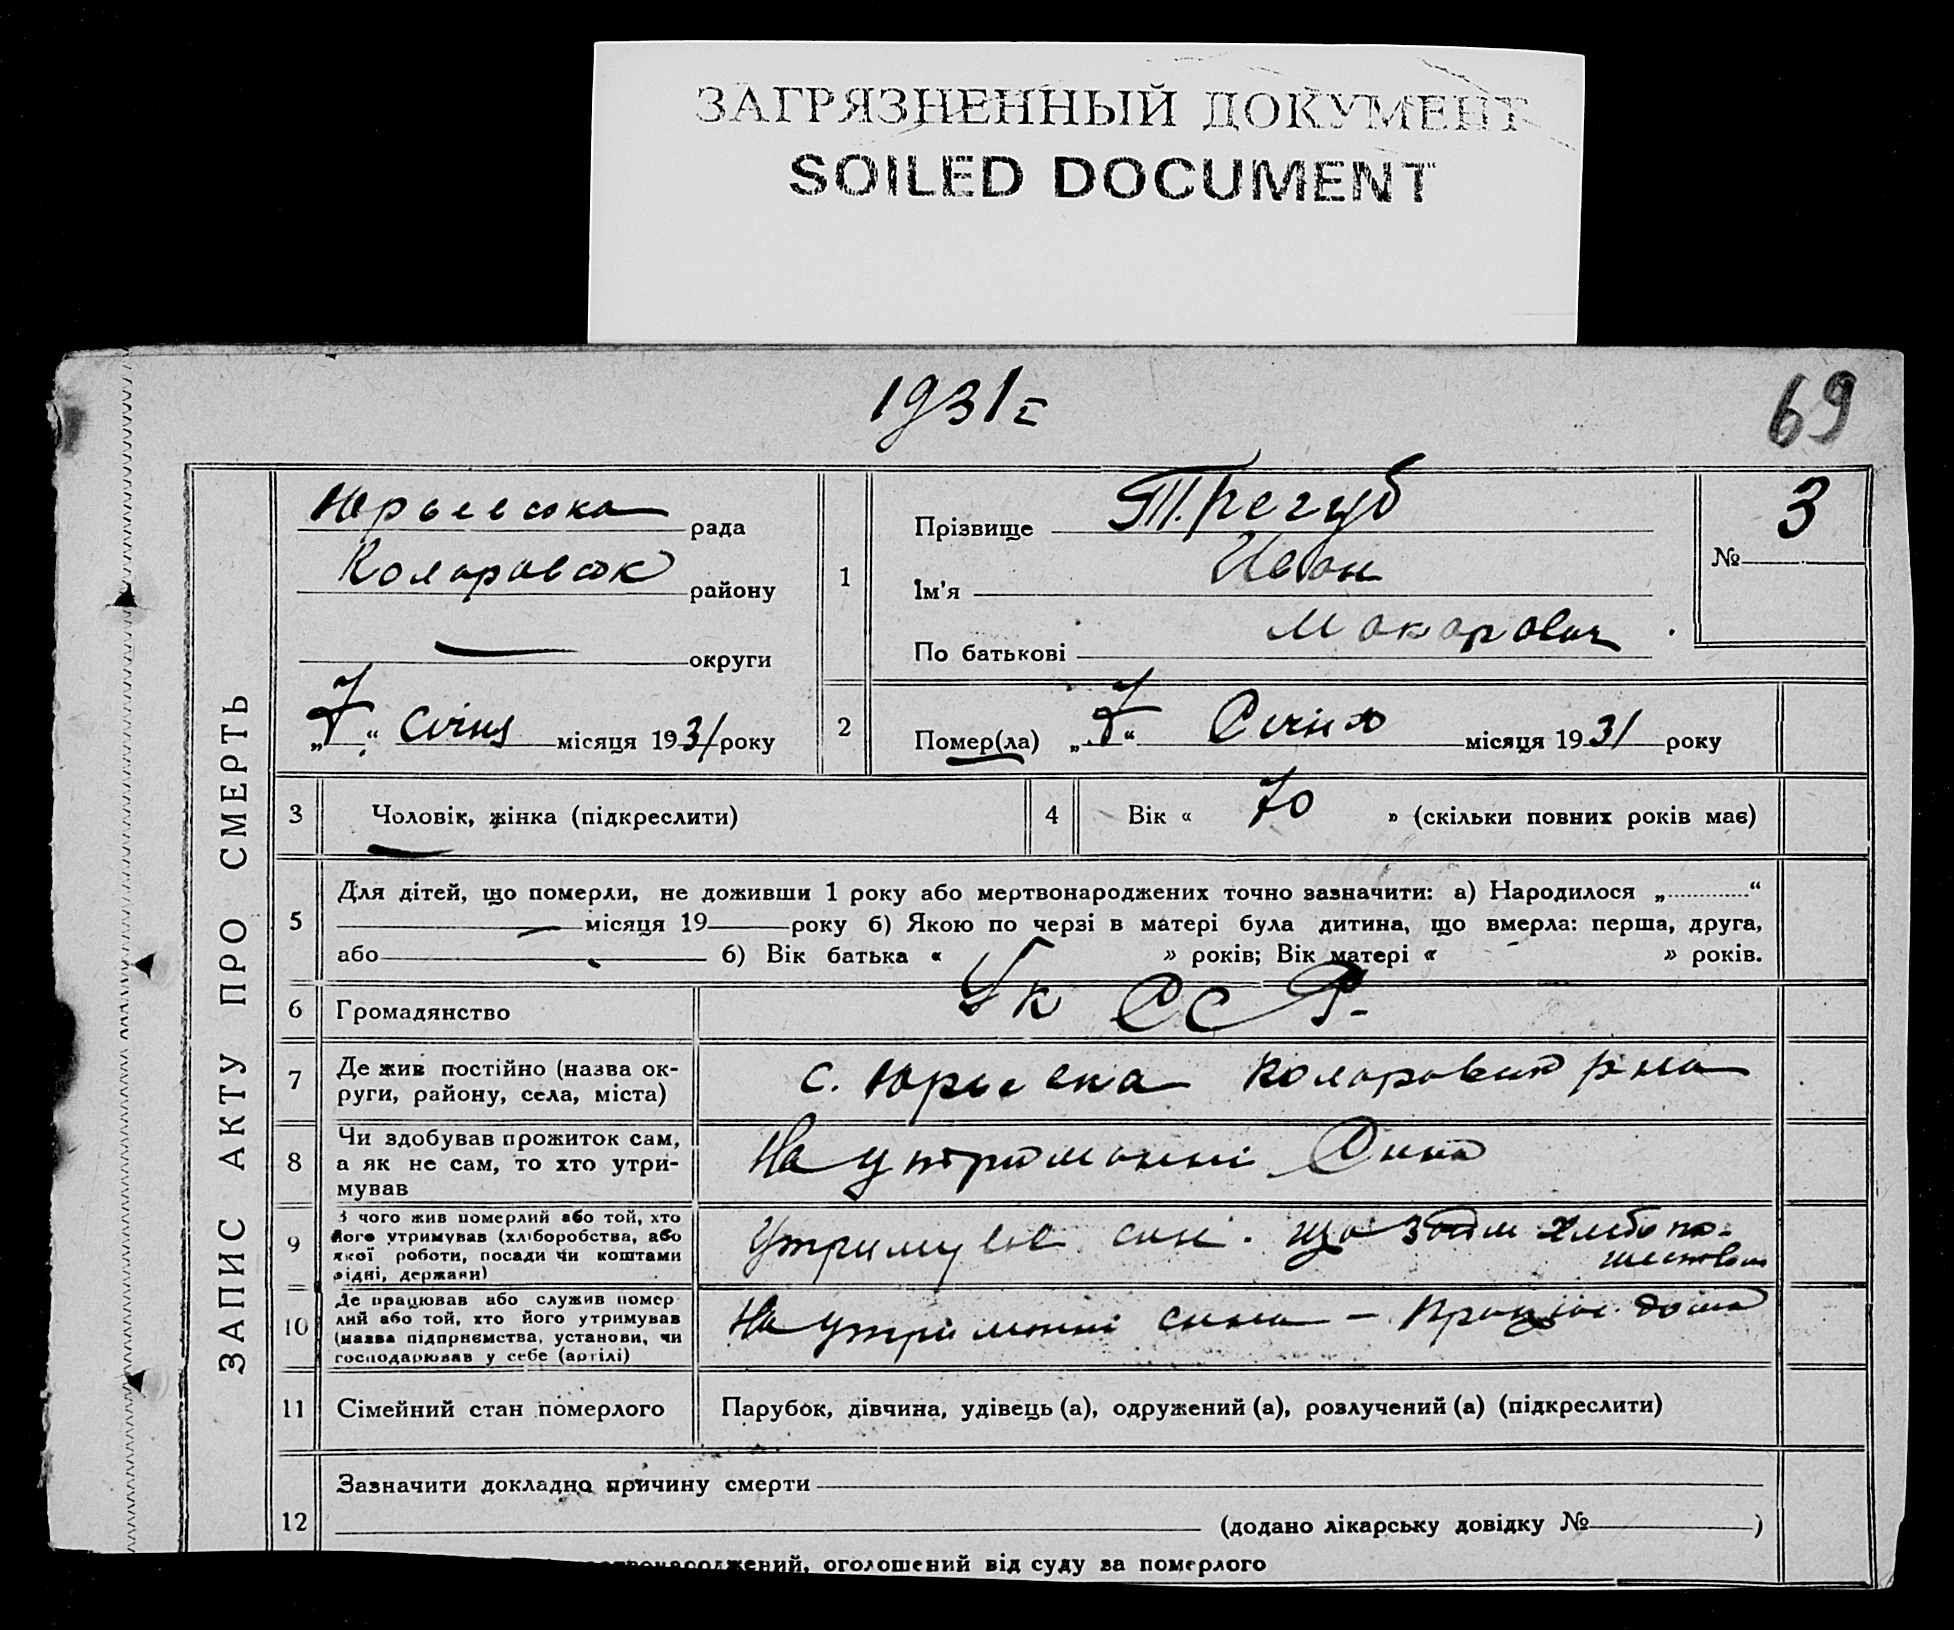 ЗАГРЯЗНЕННЫЙ ДОКУМЕНТ
SOILED DOCUMENT
1931 г
69
ЗАПИС АКТУ ПРО СМЕРТЬ
Юрьевська рада
Коларовськ району
— округи
„7“ Січня місяця 1931 року
1
Прізвище Трегуб
Ім'я Иван
По батькові Макарович
№ 3
2
Помер(ла) „7“ Січня місяця 1931 року
3 Чоловік, жінка (підкреслити)
4 Вік « 70 » (скільки повних років має)
5
Для дітей, що померли, не доживши 1 року або мертвонароджених точно зазначити: а) Народилося „ “
— місяця 19 року б) Якою по черзі в матері була дитина, що вмерла: перша, друга,
або б) Вік батька « » років; Вік матері « » років.
6 Громадянство Ук ССР.
7
Де жив постійно (назва ок-
руги, району, села, міста)
с. Юрьевка Коларовськ р-на
8
Чи здобував прожиток сам,
а як не сам, то хто утри-
мував
На утриманні Сина
9
З чого жив померлий або той, хто
його утримував (хліборобства, або
якої роботи, посади чи коштами
рідні, держави)
Утримував син. що
10
Де працював або служив помер
лий або той, хто його утримував
(назва підприємства, установи, чи
господарював у себе (артілі)
На утриманні сина — дома
11 Сімейний стан померлого Парубок, дівчина, удівець (а), одружений (а), розлучений (а) (підкреслити)
12
Зазначити докладно причину смерти
(додано лікарську довідку № )
оголошений від суду за померлого